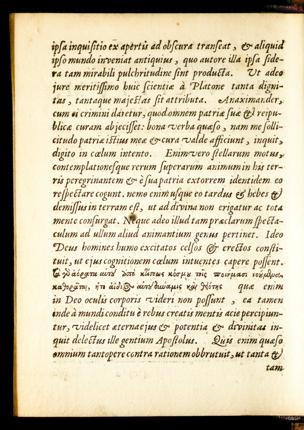 ipsa inquisitio ex apertis ad obscura transeat, & aliquid
ipso mundo inveniat antiquius, quo autore illa ipsa side-
ra tam mirabili pulchritudine sint producta. Ut adeo
jure meritissimo huic scientiæ à Platone tanta digni-
tas, tantaque majestas sit attributa. Anaximander,
cum ei crimini daretur, quod omnem patriæ suæ & reipu-
blicæ curam abjecisset: bona verba quæso, nam me solli-
citudo patriæ istius mea & cura valde afficiunt, inquit,
digito in cœlum intento. Enimvero stellarum motus,
contemplationesque rerum superarum animum in his ter-
ris peregrinantem & è sua patria extorrem identidem eo
respectare cogunt. nemo enim usque eo tardus & hebes &
demissus in terram est, ut ad divina non erigatur ac tota
mente consurgat. Neque adeo illud tam præclarum specta-
culum ad ullum aliud animantium genus pertinet. Ideo
Deus homines humo excitatos celsos & erectos consti-
tuit, ut ejus cognitionem cœlum intuentes capere possent.
κόσμου τοῖς ποιήμασι νοούμενα
καθορᾶται, ἥτε ἀΐδιος αὐτοῦ δύναμις καὶ θειότης quæ enim
in Deo oculis corporis videri non possunt, ea tamen
inde à mundi conditu è rebus creatis mentis acie percipiun-
tur, videlicet æterna ejus & potentia & divinitas in-
quit delectus ille gentium Apostolus. Quis enim quæso
omnium tantopere contra rationem obbrutuit, ut tanta &
tam